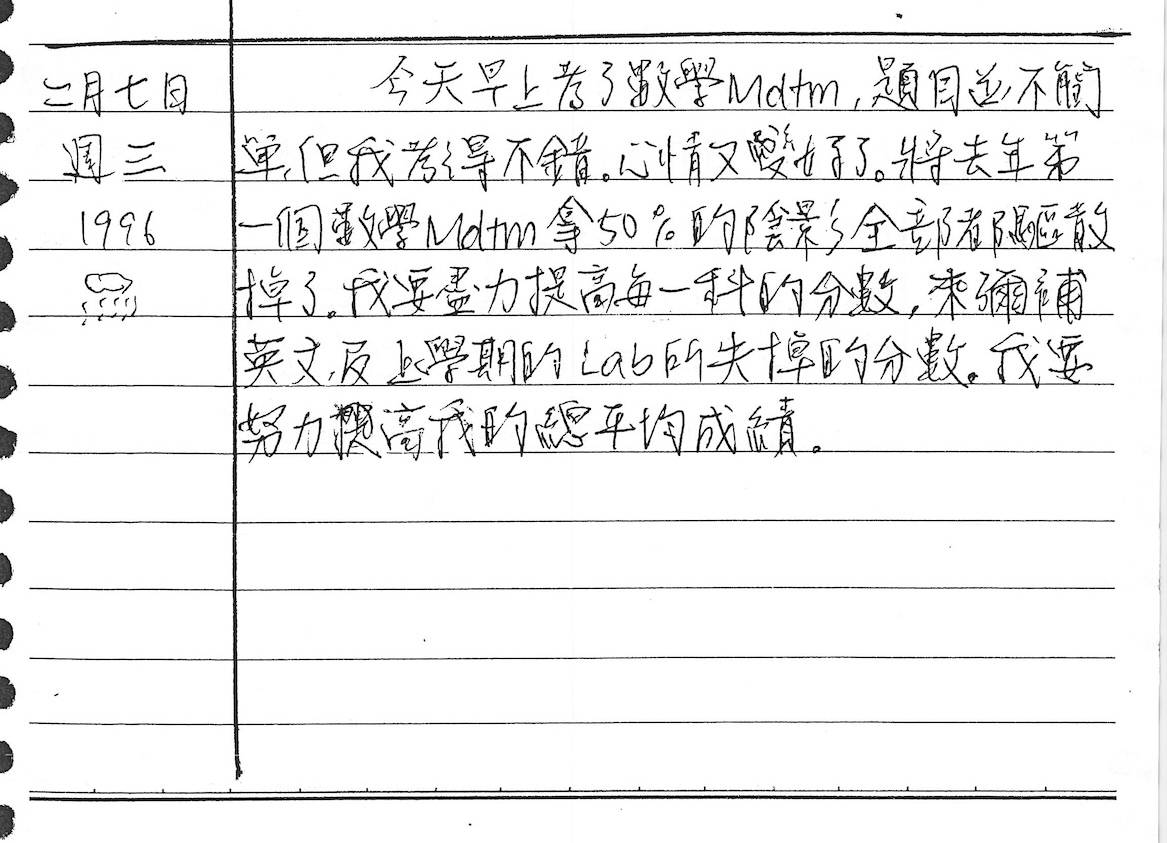 二月七日
週三
1996
今天早上考了數學Mdtm,題目並不簡
單,但我考得不錯。心情又變好了。將去年第
一個數學Mdtm拿50%的陰影全部都驅散
掉了。我要盡力提高每一科的分數,來彌補
英文及上學期的Lab所失掉的分數。我要
努力提高我的總平均成績。